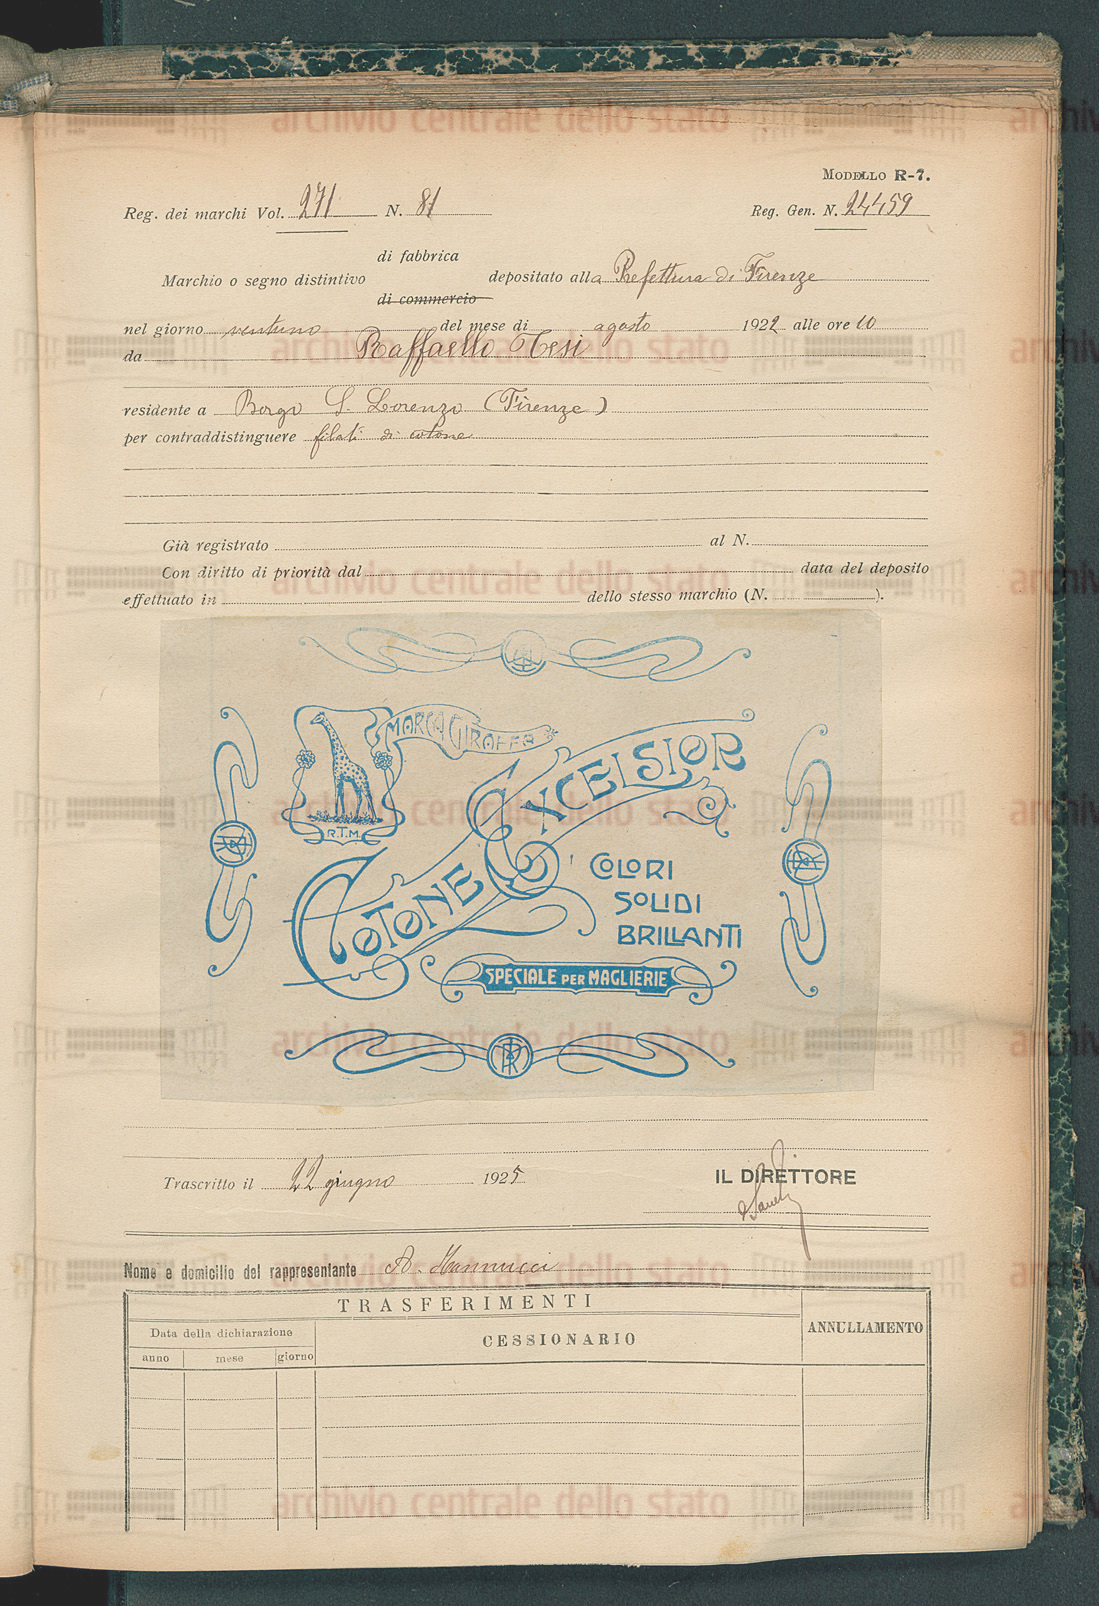 MODELLO R-7.
Reg. dei marchi Vol. 271 N. 81 Reg. Gen. N. 24459
di fabbrica
Marchio o segno distintivo depositato alla Prefettura di Firenze
di commercio
nel giorno ventuno del mese di agosto 1922 alle ore 10
da Raffaello Tesi
residente a Borgo S. Lorenzo (Firenze)
per contraddistinguere filati di cotone
Già registrato al N.
Con diritto di priorità dal data del deposito
effettuato in dello stesso marchio (N. ).
MARCA GIRAFFA
R.T.M.
COTONE EXCELSIOR
COLORI
SOLIDI
BRILLANTI
SPECIALE PER MAGLIERIE
Trascritto il 22 giugno 1925 IL DIRETTORE
Nome e domicilio del rappresentante A. Mannucci
TRASFERIMENTI
Data della dichiarazione CESSIONARIO ANNULLAMENTO
anno mese giorno
archivio centrale dello stato
archivio centrale dello stato
archivio centrale dello stato
archivio centrale dello stato
archivio centrale dello stato
archivio centrale dello stato
archivio centrale dello stato